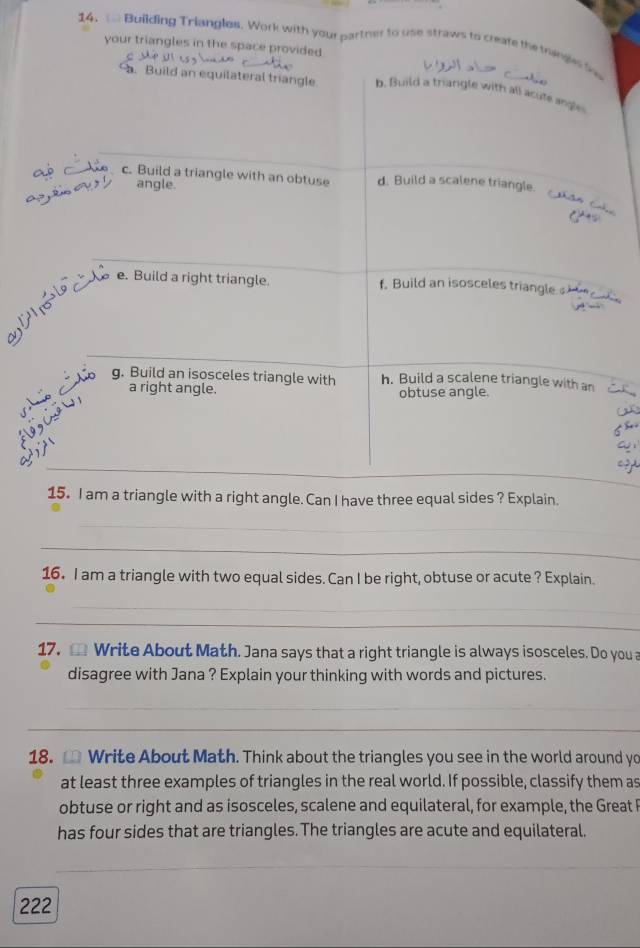 14. Building Triangles. Work with your partner to use straws to create the triangles
your triangles in the space provided.
مثلث متساوى الاضلاع
مثلث حاد الزوايا
a. Build an equilateral triangle.
b. Build a triangle with all acute angles.
مثلث فيه
زاويه منفرجه
c. Build a triangle with an obtuse
angle.
d. Build a scalene triangle.
مثلث مختلف
الاضلاع
مثلث قائم الزاويه
e. Build a right triangle.
f. Build an isosceles triangle.
مثلث
مثلث متساوى
الساقين وقائم
الزاويه
g. Build an isosceles triangle with
a right angle.
h. Build a scalene triangle with an
obtuse angle.
15. I am a triangle with a right angle. Can I have three equal sides ? Explain.
16. I am a triangle with two equal sides. Can I be right, obtuse or acute ? Explain.
17. Write About Math. Jana says that a right triangle is always isosceles. Do you a
disagree with Jana ? Explain your thinking with words and pictures.
18. Write About Math. Think about the triangles you see in the world around yo
at least three examples of triangles in the real world. If possible, classify them as
obtuse or right and as isosceles, scalene and equilateral, for example, the Great P
has four sides that are triangles. The triangles are acute and equilateral.
222